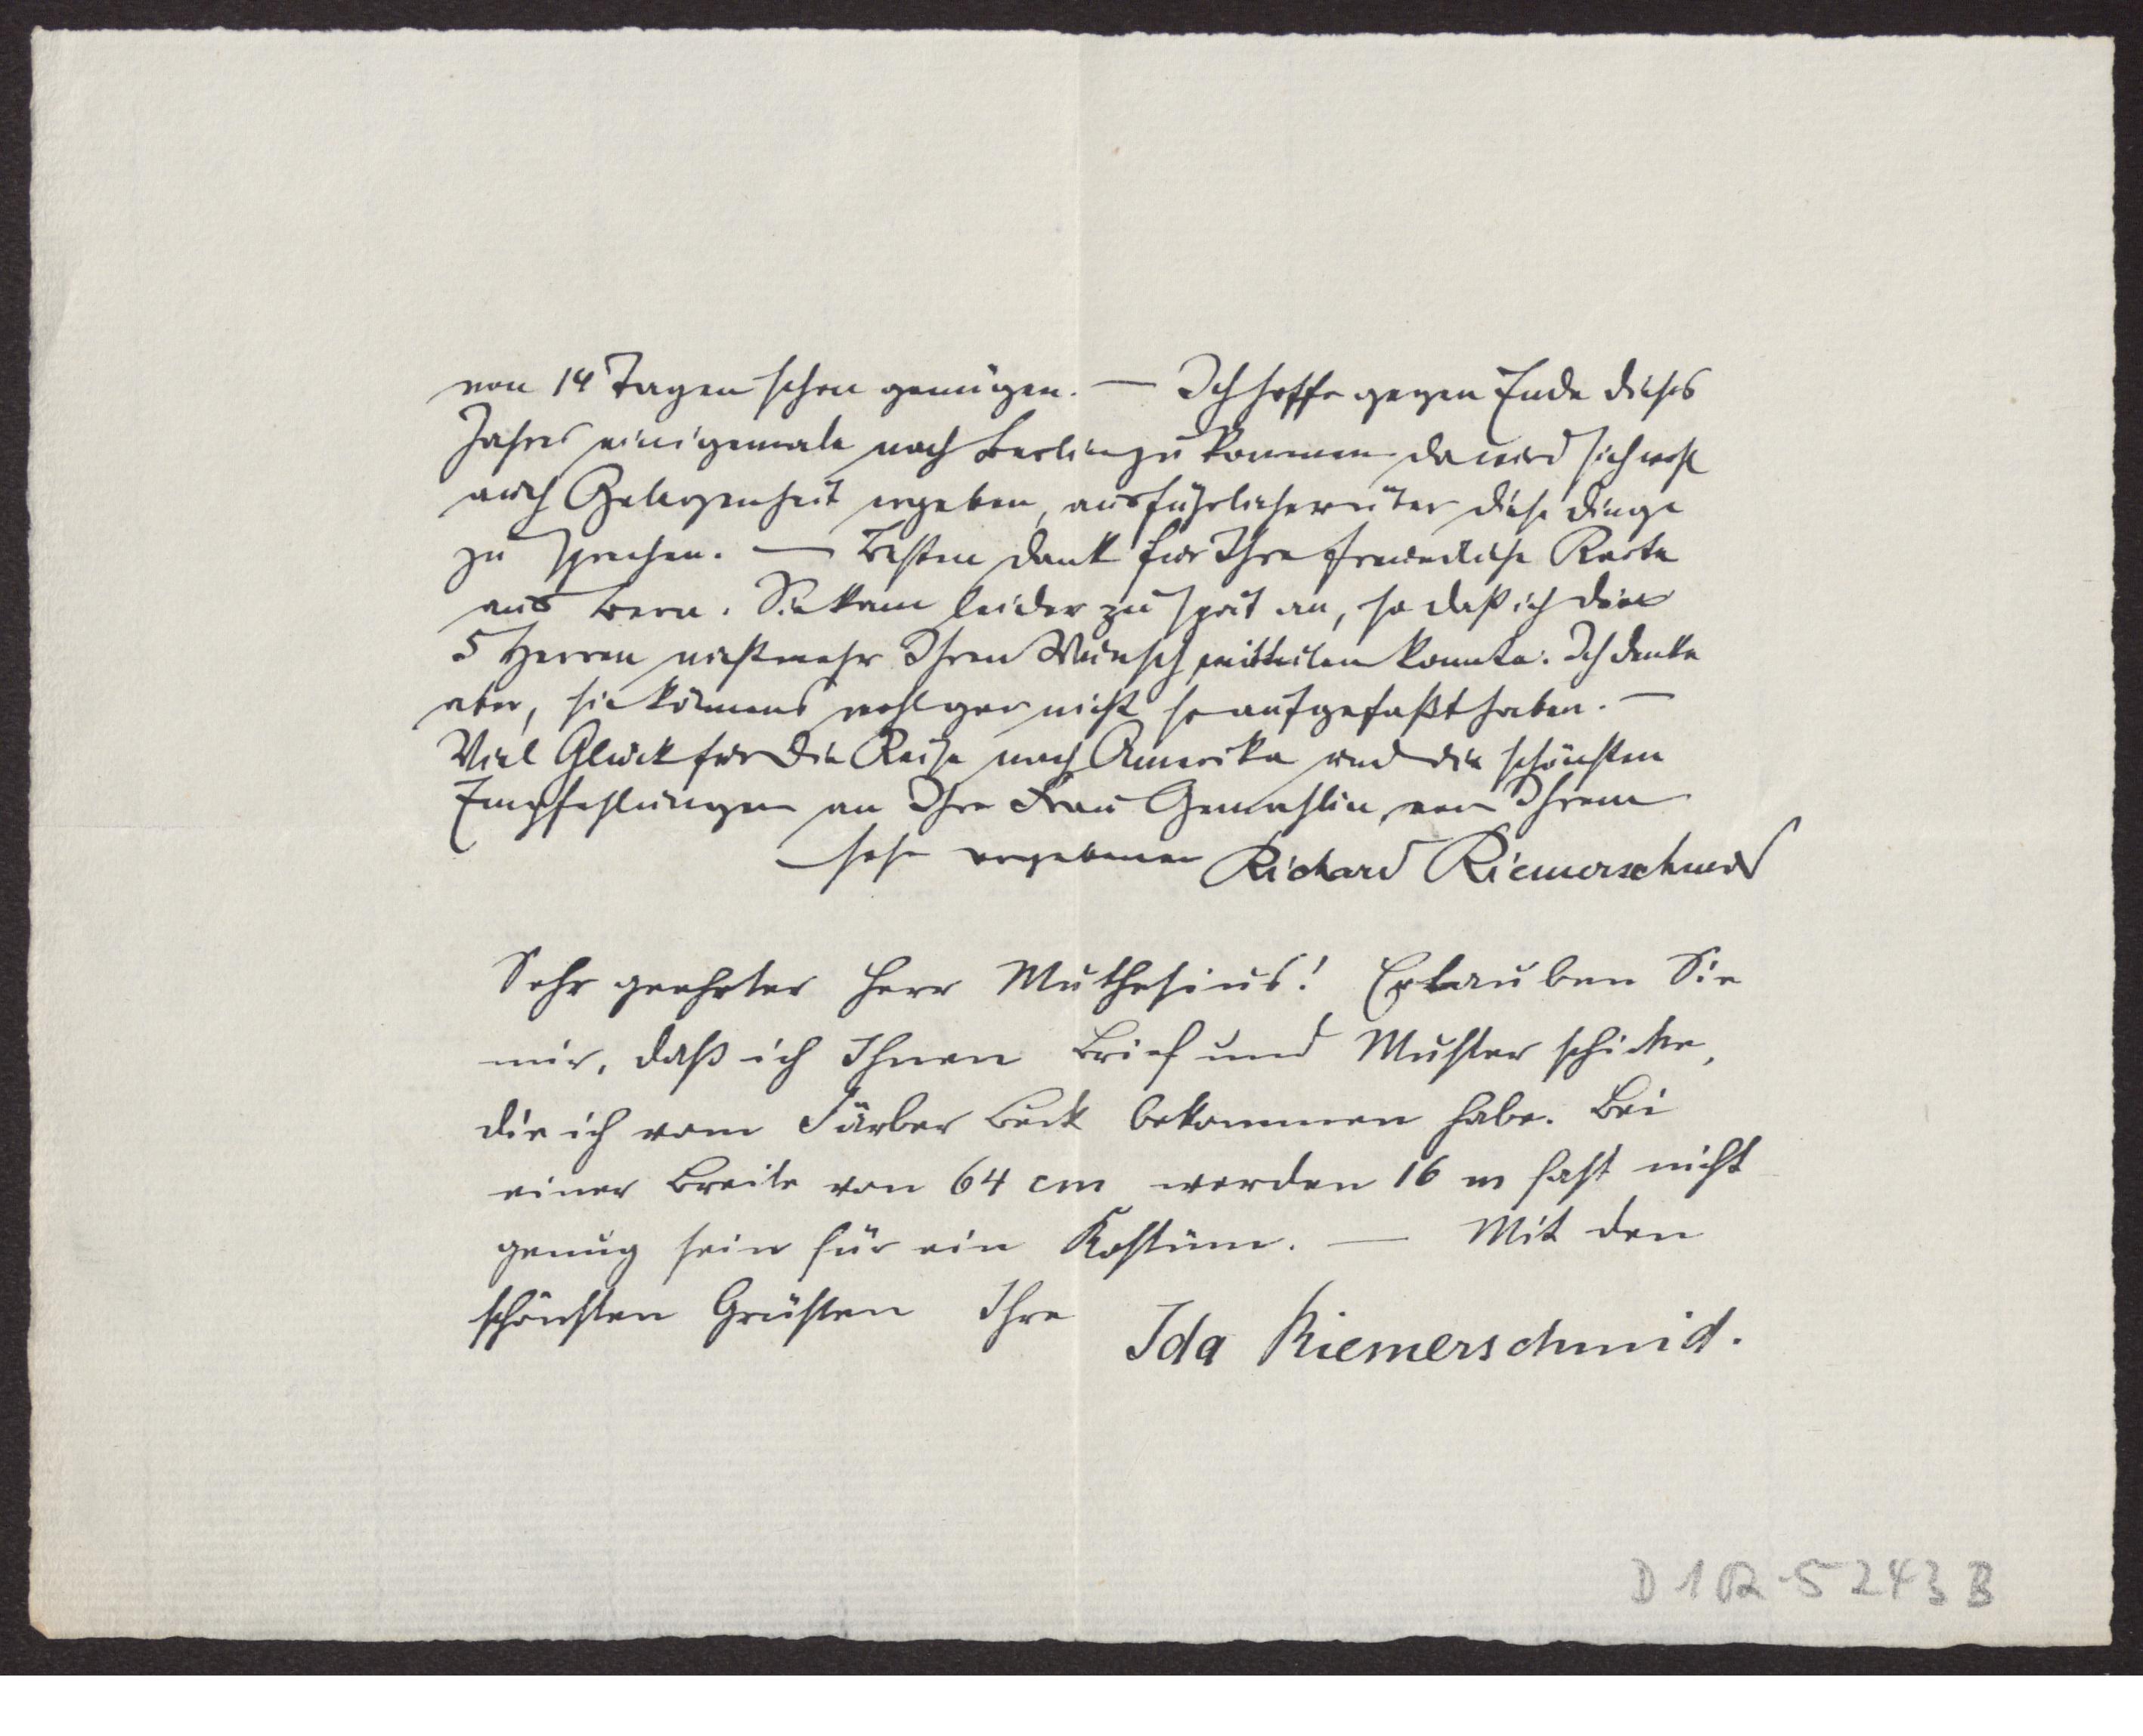 von 14 Tagen schon genügen. — Ich hoffe gegen Ende dieses
Jahres einigemale nach Berlin zu kommen da wird sich wohl
auch Gelegenheit ergeben, ausführlicher über diese Dinge
zu sprechen. — Besten Dank für Ihre freundliche Karte
aus Bern. Sie kam leider zu spät an, so daß ich den
5 Herren nicht mehr Ihren Wunsch mitteilen konnte. Ich denke
aber, sie können's wohl gar nicht so aufgefaßt haben. —
Viel Glück für die Reise nach Amerika und die schönsten
Empfehlungen an Ihre Frau Gemahlin von Ihrem
sehr ergebenen Richard Riemerschmid
Sehr geehrter Herr Muthesius! Erlauben Sie
mir, daß ich Ihnen Brief und Muster schicke,
die ich vom Färber Beck bekommen habe. Bei
einer Breite von 64 cm werden 16 m fast nicht
genug sein für ein Kostüm. — Mit den
schönsten Grüßen Ihre Ida Riemerschmid.
D 1 R - 5243 B